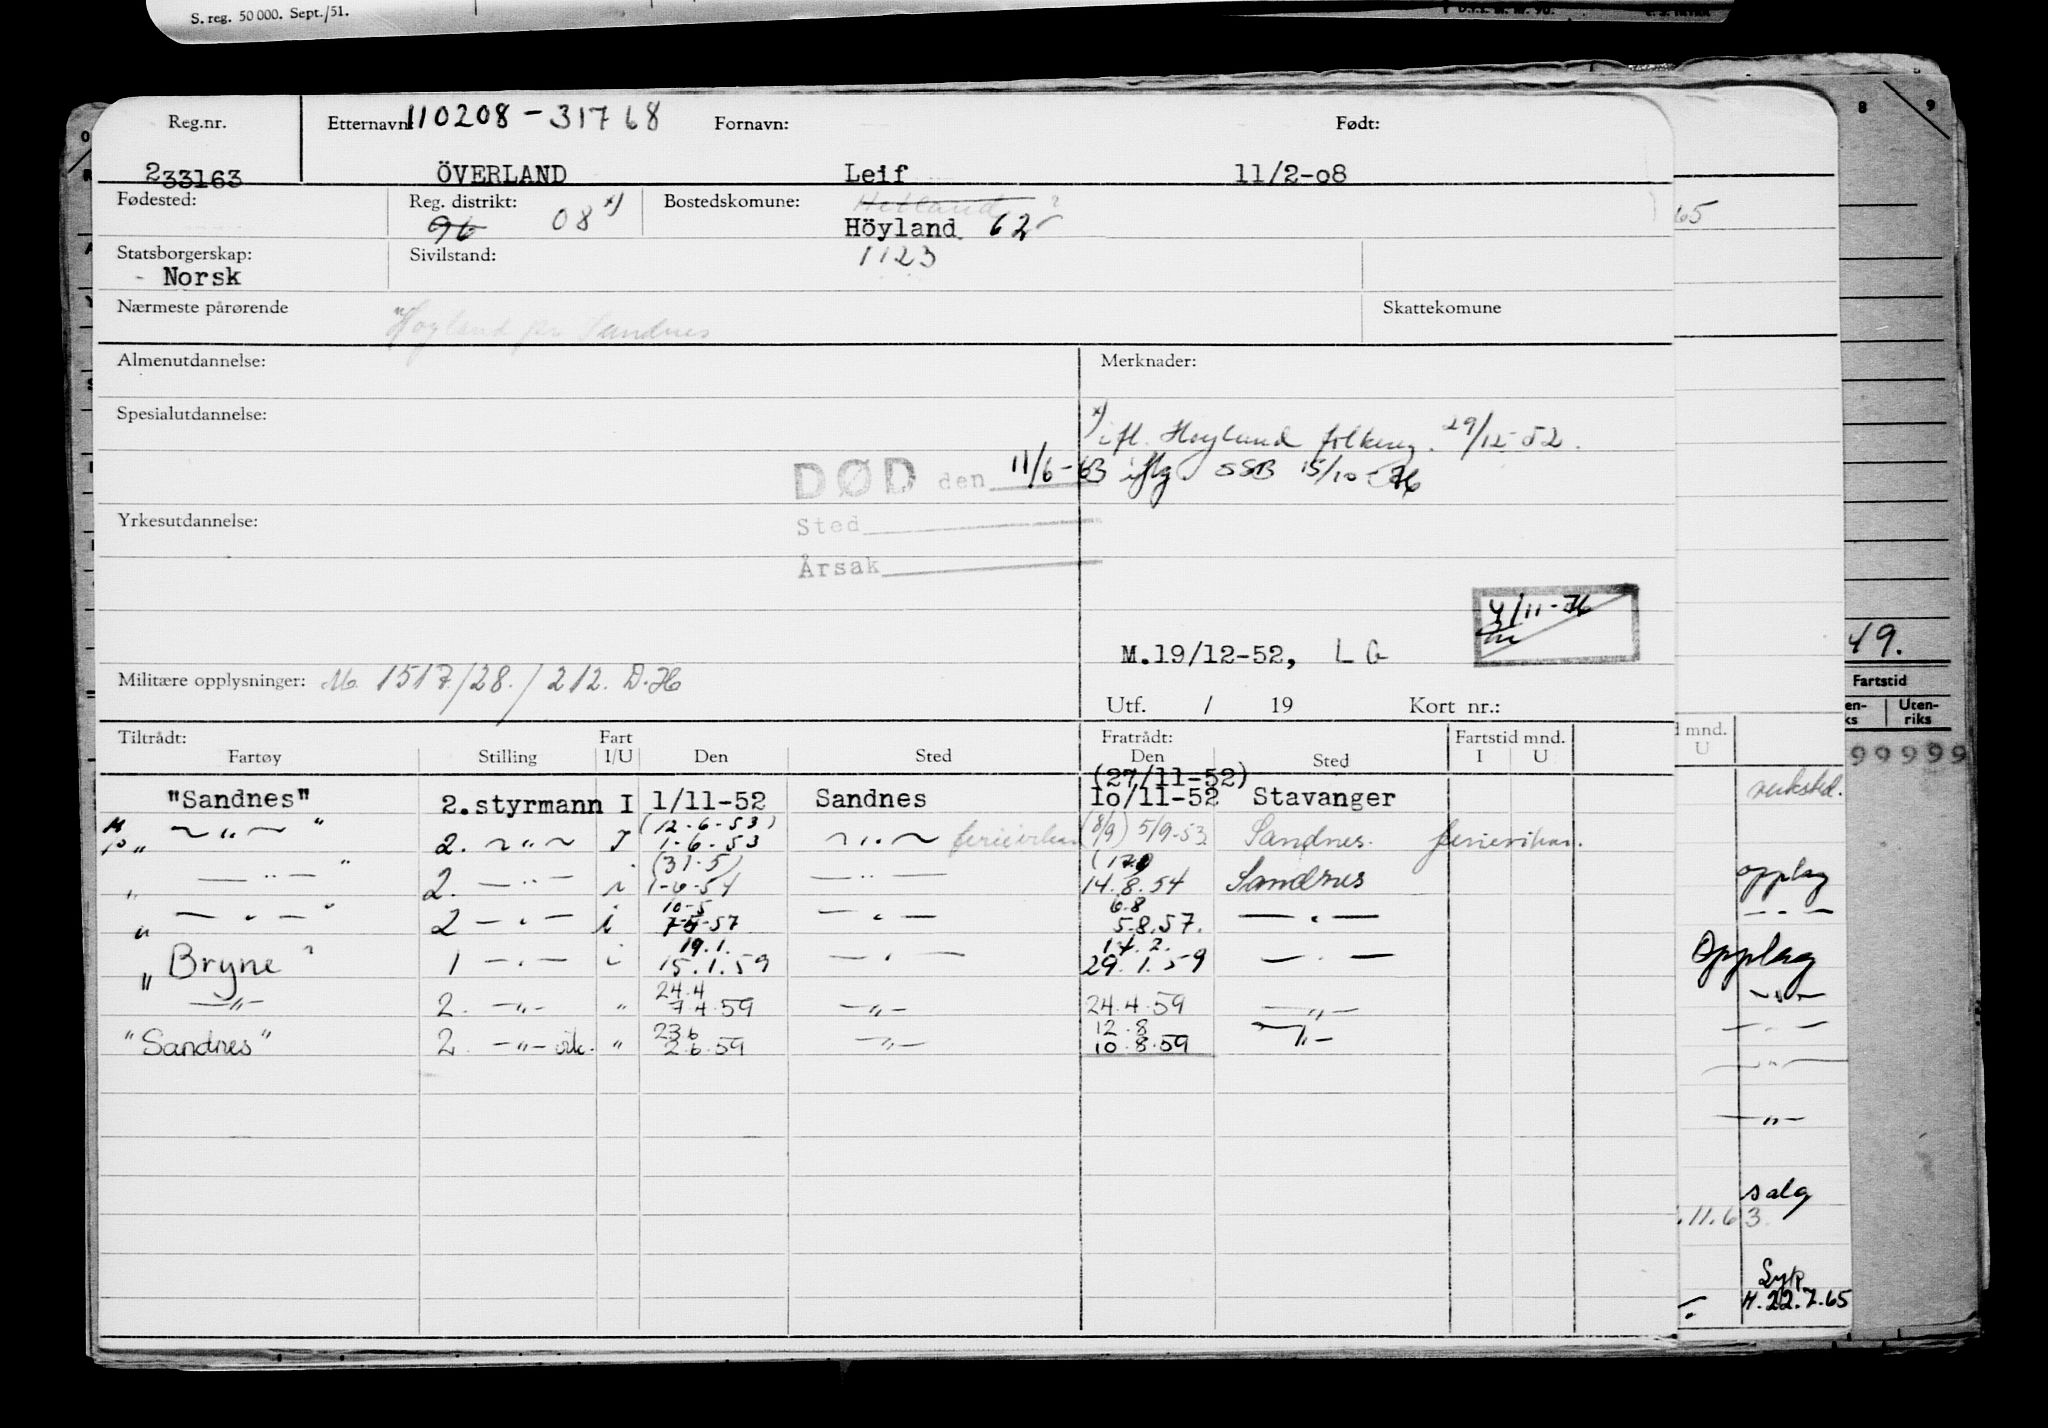 S. reg. 50 000. Sept./51.
Reg.nr. Etternavn: 110208-31768 Fornavn: Født:
233163 ÖVERLAND Leif 11/2-08
Fødested: Reg. distrikt: 96 08 x) Bostedskomune: Hetland ?
Höyland 62
Statsborgerskap: Sivilstand: 1123
- Norsk
Nærmeste pårørende Høyland pr Sandnes Skattekomune
Almenutdannelse: Merknader:
Spesialutdannelse: x) ifl. Høyland folkereg. 29/12-52.
DØD den 11/6-63 iflg SSB 15/10-76
Yrkesutdannelse: Sted
Årsak
4/11-76
M.19/12-52, L G
Militære opplysninger: M. 1517/28./212. D.H
Utf. / 19 Kort nr.:
Tiltrådt: Fart Fratrådt: Fartstid mnd.
Fartøy Stilling I/U Den Sted Den Sted I U
(27/11-52)
"Sandnes" 2.styrmann I 1/11-52 Sandnes 10/11-52 Stavanger
(12-6-53)
" — " — " 2. — " — I 1-6-53 — " — ferievikar (8/9) 5/9-53 Sandnes. ferievikar.
(31-5)
" — " — " 2. — " — i 1-6-54 — " — 14.8.54 Sandnes
10-5 6.8
" — " — " 2 — " — i 7-5-57 — " — 5.8.57. — " —
19.1. 14.2.
"Bryne" 1 — " — i 15.1.59 — " — 29.1.59 — " —
24.4
— " — 2. — " — " 7.4.59 — " — 24.4.59 — " —
23.6 12.8
"Sandnes" 2. — " — vik. " 2.6.59 — " — 10.8.59 — " —
65
8 9
49.
Fartstid
Uten-
riks
mnd.
U
99999
verksted.
opplag
— " —
Opplag
— " —
— " —
— " —
— " —
salg
.11.63
Syk
H. 22.7.65